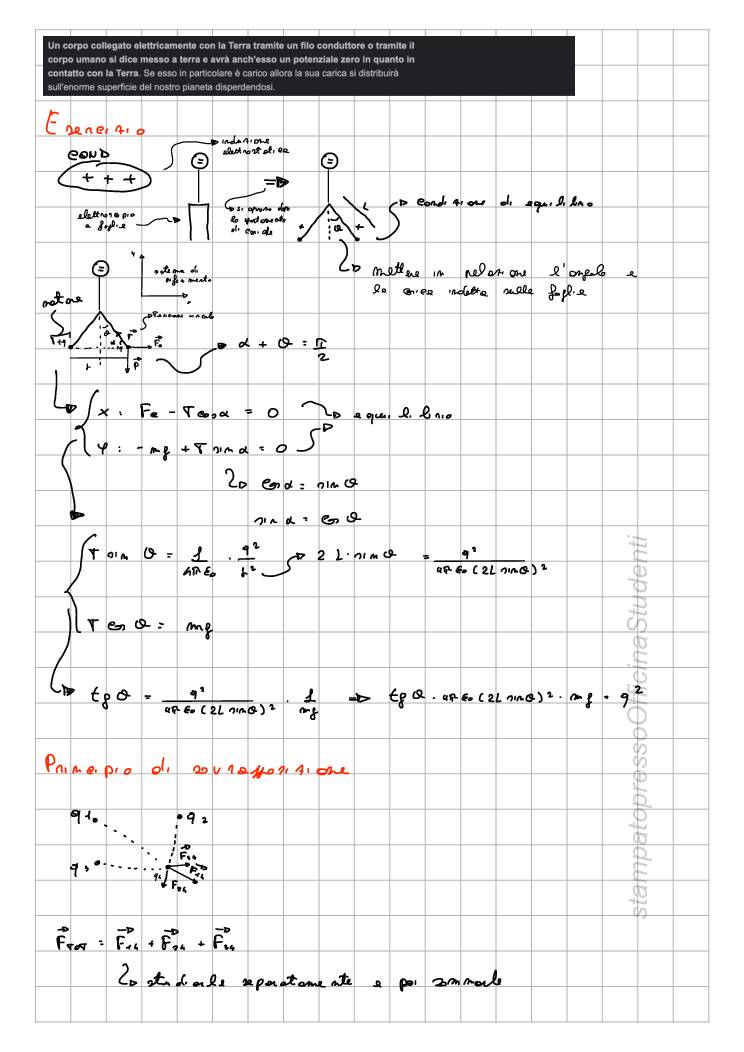 Un corpo collegato elettricamente con la Terra tramite un filo conduttore o tramite il
corpo umano si dice messo a terra e avrà anch'esso un potenziale zero in quanto in
contatto con la Terra. Se esso in particolare è carico allora la sua carica si distribuirà
sull'enorme superficie del nostro pianeta disperdendosi.
Esercizio
COND
+ + +
induzione
elettrostatica
elettroscopio
a foglie
si aprono dopo
lo spostamento
di cariche
θ
L
condizione di equilibrio
mettere in relazione l'angolo e
la carica indotta sulle foglie
sistema di
riferimento
y
x
T
Fe
P
r
α + θ = π/2
x: Fe - T cos α = 0
equilibrio
y: - mg + T sin α = 0
cos α = sin θ
sin α = cos θ
T sin θ = 1/4πε₀ · q²/r²
2 L · sin θ = q²/4πε₀ (2L sinθ)²
T cos θ = mg
tg θ = q²/4πε₀ (2L sinθ)² · 1/mg ⇒ tg θ · 4πε₀ (2L sinθ)² · mg = q²
Principio di sovrapposizione
q1
q2
q3
q4
F34
F14
F24
FTOT = F14 + F24 + F34
studiarle separatamente e poi sommarle
stampatopressoOfficinaStudenti